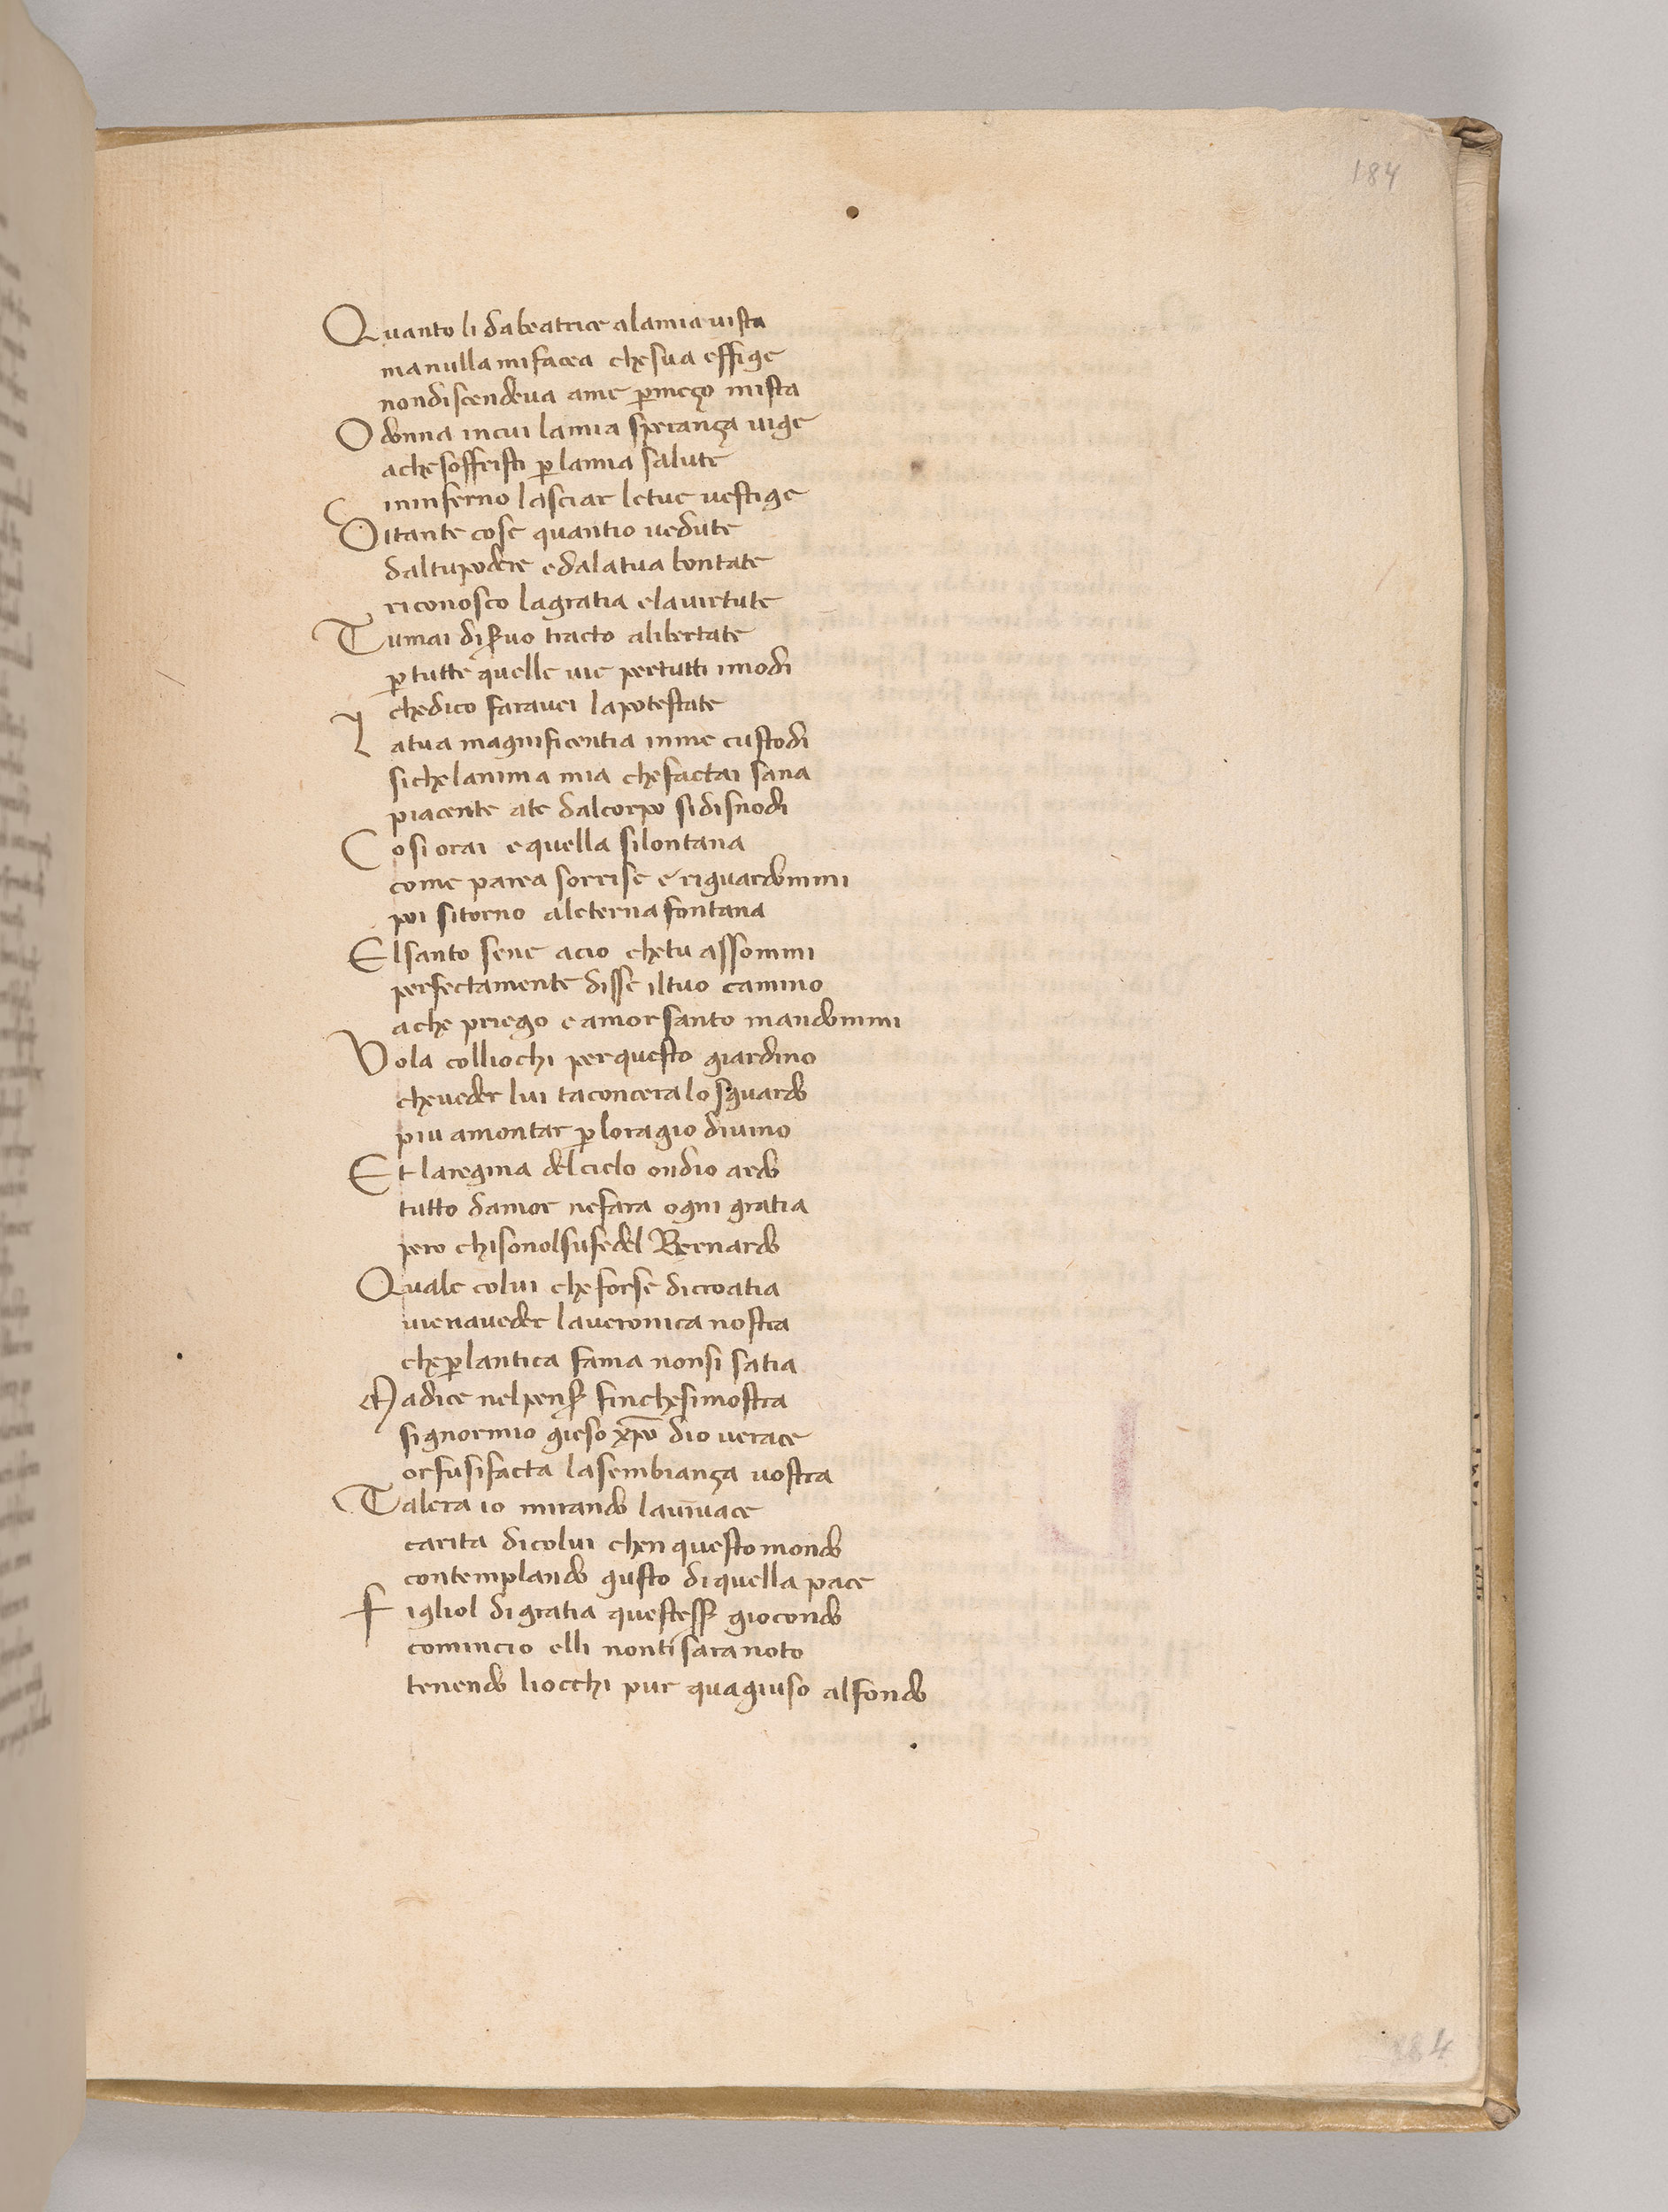 184
Quanto li da beatrice alamia uista
manulla mifacea chesua effige
nondiscendeua ame ꝑmeço mista
O donna incui lamia sperança uige
achesoffristi ꝑ lamia salute
ininferno lasciar letue uestige
Ditante cose quantio uedute
daltupodere edalatua bontate
riconosco lagratia elauirtute
Tumai diẜuo tracto alibertate
ꝑ tutte quelle uie pertutti imodi
chedico farauei lapotestate
Latua magnificentia inme custodi
sichelanima mia chefactai sana
piacente ate dalcorpo sidisnodi
Cosi orai equella silontana
come parea sorrise e riguardommi
poi sitorno aleterna fontana
El santo sene acio chetu assommi
perfectamente disse iltuo camino
ache priego e amor santo mandommi
Vola colliochi perquesto giardino
cheueder lui taconcera lo sguardo
piu amontar ꝑ loragio diuino
Et laregina delcielo ondio ardo
tutto damor nefara ogni gratia
pero chisonolsufedel Bernardo
Quale colui cheforse dicroatia
uienaueder laueronica nostra
cheꝑ lantica fama nonsi satia
Madice nelpenẜ finchesimostra
signormio gieso xp̅o dio uerace
orfusifacta lasembiança uostra
Talera io mirando lauiuace
carita dicolui chen questomondo
contemplando gusto diquella pace
Figliol digratia questesẜ giocondo
comincio elli nontisaranoto
tenendo liocchi pur quagiuso alfondo
184